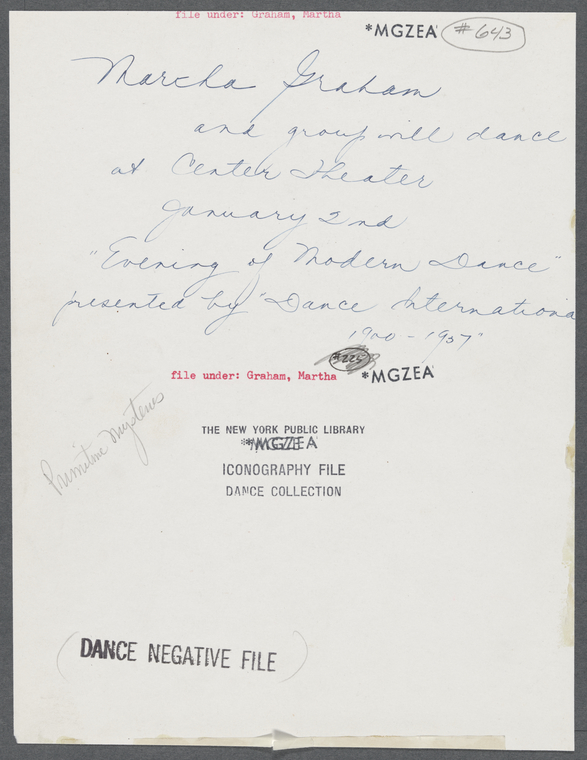 file under: Graham, Martha
*MGZEA #643
Martha Graham
and group will dance
at Center Theater
January 2nd
"Evening of Modern Dance"
presented by "Dance Internationa
1900 - 1937"
#225
file under: Graham, Martha *MGZEA
Primitive Mysteries
THE NEW YORK PUBLIC LIBRARY
*MGZEA
ICONOGRAPHY FILE
DANCE COLLECTION
(DANCE NEGATIVE FILE)